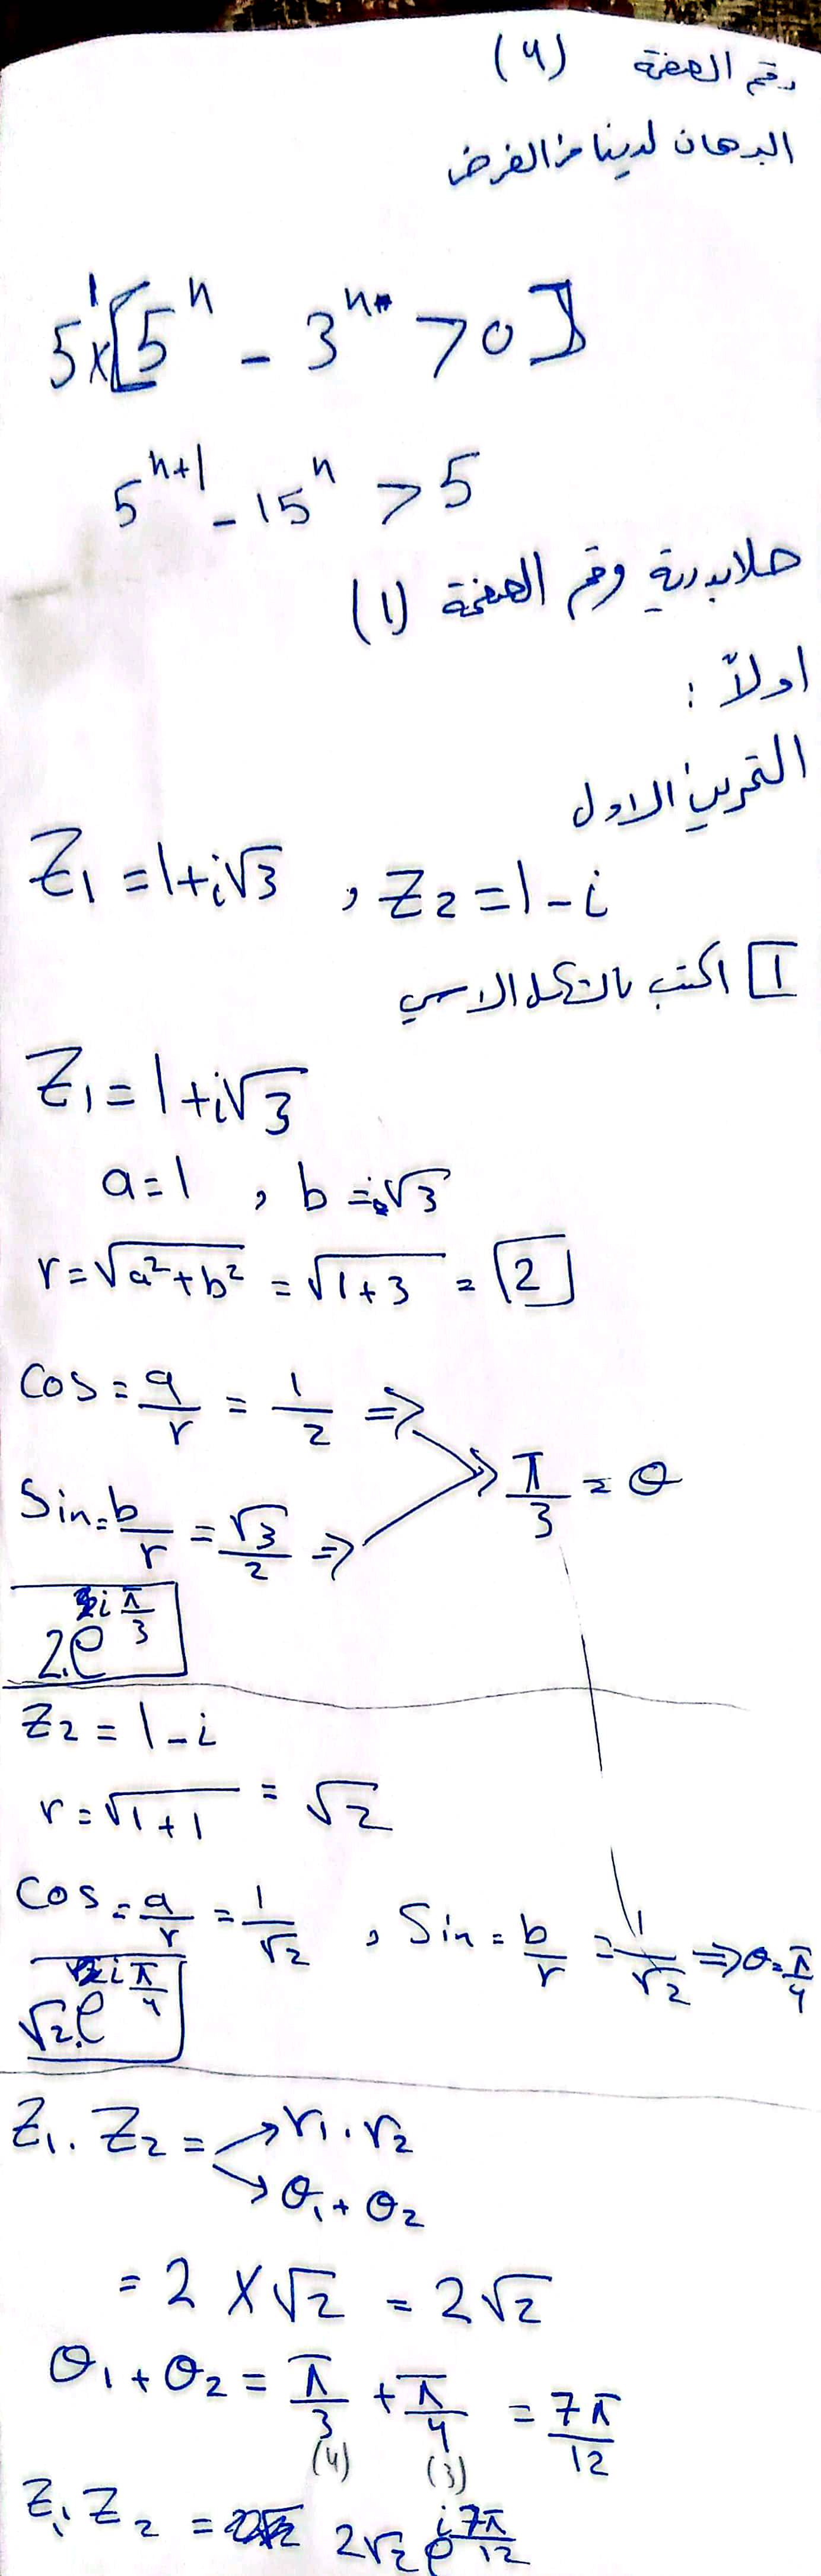 رقم الصفحة (4)
البرهان لدينا من الفرض
5¹×[5ⁿ - 3ⁿ > 0]
5ⁿ⁺¹ - 15ⁿ > 5
رقم الصفحة (1)
اولاً :
التمرين الاول
Z₁ = 1+i√3 , Z₂ = 1-i
1 اكتب بالشكل الاسي
Z₁ = 1+i√3
a=1 , b=√3
r=√a²+b² = √1+3 = 2
Cos = a/r = 1/2 ⇒
π/3 = θ
Sin = b/r = √3/2 ⇒
2.e^iπ/3
Z₂ = 1-i
r=√1+1 = √2
Cos = a/r = 1/√2 , Sin = b/r = 1/√2 ⇒ θ=π/4
√2.e^iπ/4
Z₁.Z₂ = → r₁.r₂
→ θ₁+θ₂
= 2×√2 = 2√2
θ₁+θ₂ = π/3 + π/4 = 7π/12
(4) (3)
Z₁.Z₂ = 2√2 e^i7π/12